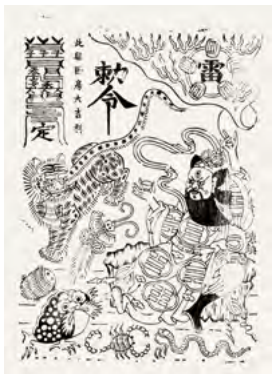 雷
勅令
此臥房大吉利
定